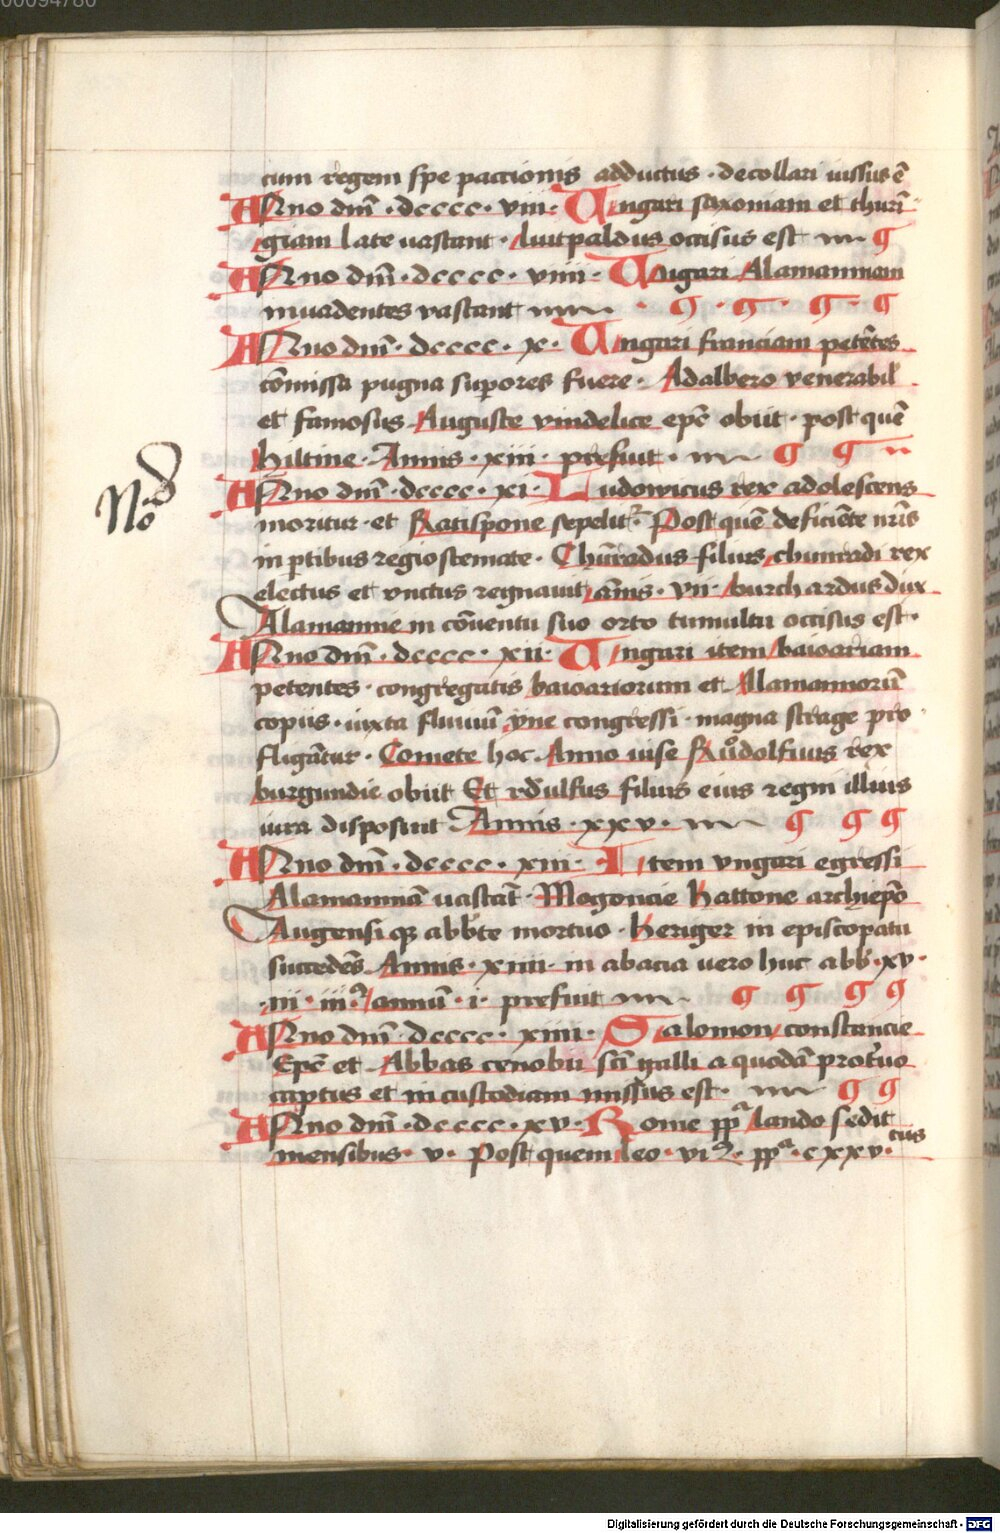 00094780
cum regem spe pactionis adductus · decollari iussus ē
Anno dnī · dcccc · viii · Ungari saxoniam et thurī
giam late uastant · luitpaldus occisus est
Anno dnī · dcccc · viiii · Ungari Alamanniam
inuadentes vastant
Anno dnī · dcccc · x · Ungari franciam petētes
cōmissa pugna supores fuere · Adalbero venerabil
et famosus Auguste vindelice epc̄ obiit · post quē
hiltine · Annis · xiii · prefuit ·
No
Anno dnī · dcccc · xi · Ludowicus rex adolescens
moritur · et Ratispone sepelit᷑ · Post quē deficiēte nr̄is
in ptibus regio stemate · Chūradus filius chunradi rex
electus et vnctus regnauit ānis · vii · burchardus dux
Alamannie in cōuentu suo orto tumultu occisus est ·
Anno dnī · dcccc · xii · Ungari item baioariam
petentes · congregatis baioariorum et Alamannorū
copiis · iuxta fluuiū yne congressi · magna strage pro
fligātur · Comete hoc Anno uise Ruͦdolfus rex
burgundie obiit Et rͦdulfus filius eius regni illius
iura disposuit Annis · xxv ·
Anno dnī · dcccc · xiii · Item vngari egressi
Alamanniā uastāt · Mogoncie hattone archiepō
Augensi qꝫ abbte mortuo · heriger in episcopatu
succedēs Annis · xiiii · in abacia uero huc abb · xv ·
annū · i · prefuit
Anno dnī · dcccc · xiiii · Salomon constancie
Epc̄ et Abbas cenobii sc̄i galli a quodā proteruo
captus et in custodiam missus est ·
Anno dnī · dcccc · xv · Rome ppᵃ lando sedit
mensibus · v · Post quem leo · vi · ppᵃ · cxxv · tus
Digitalisierung gefördert durch die Deutsche Forschungsgemeinschaft - DFG